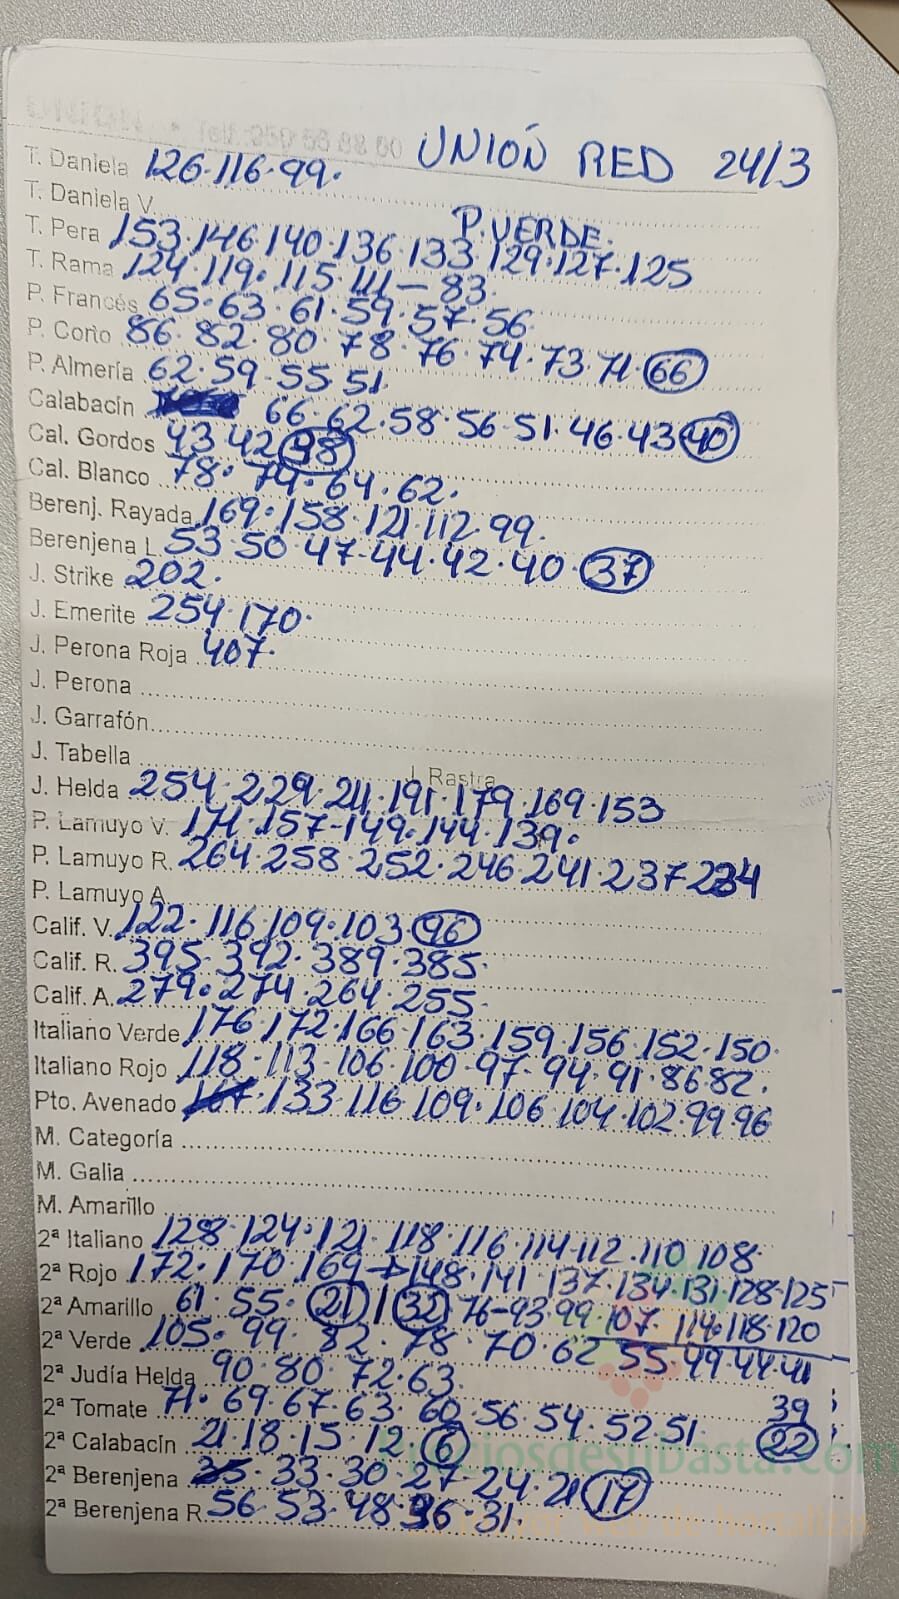 Telf.: 950 56 88 00
UNIÓN RED 24/3
T. Daniela 126·116·99·
T. Daniela V. P. VERDE.
T. Pera 153·146·140·136·133·129·127·125
T. Rama 124·119·115·111-83·
P. Francés 65·63·61·59·57·56
P. Corto 86·82·80·78·76·74·73·71·66
P. Almería 62·59·55·51
Calabacín 66·62·58·56·51·46·43·40
Cal. Gordos 43·42·38
Cal. Blanco 78·74·64·62·
Berenj. Rayada 169·158·121·112·99·
Berenjena L. 53·50·47-44·42·40·37
J. Strike 202·
J. Emerite 254·170·
J. Perona Roja 407·
J. Perona
J. Garrafón
J. Tabella J. Rastra
J. Helda 254·229·211·191·179·169·153
P. Lamuyo V. 171·157-149·144·139·
P. Lamuyo R. 264·258·252·246·241·237·234
P. Lamuyo A.
Calif. V. 122·116·109·103·96
Calif. R. 395·392·389·385·
Calif. A. 279·274·264·255·
Italiano Verde 176·172·166·163·159·156·152·150·
Italiano Rojo 118·113·106·100·97·94·91·86·82·
Pto. Avenado 133·116·109·106·104·102·99·96
M. Categoría
M. Galia
M. Amarillo
2ª Italiano 128·124·121·118·116·114·112·110·108·
2ª Rojo 172·170·169→148·141·137·134·131·128·125
2ª Amarillo 61·55·21 / 32 76-93·99·107·114·118·120
2ª Verde 105·99·82·78·70·62·55·49·44·41
39
22
2ª Judía Helda 90·80·72·63
2ª Tomate 71·69·67·63·60·56·54·52·51
2ª Calabacín 21·18·15·12
2ª Berenjena 33·30·27·24·21·17
2ª Berenjena R. 56·53·48·36·31·
Preciosdesubasta.com
por web de hortalizas